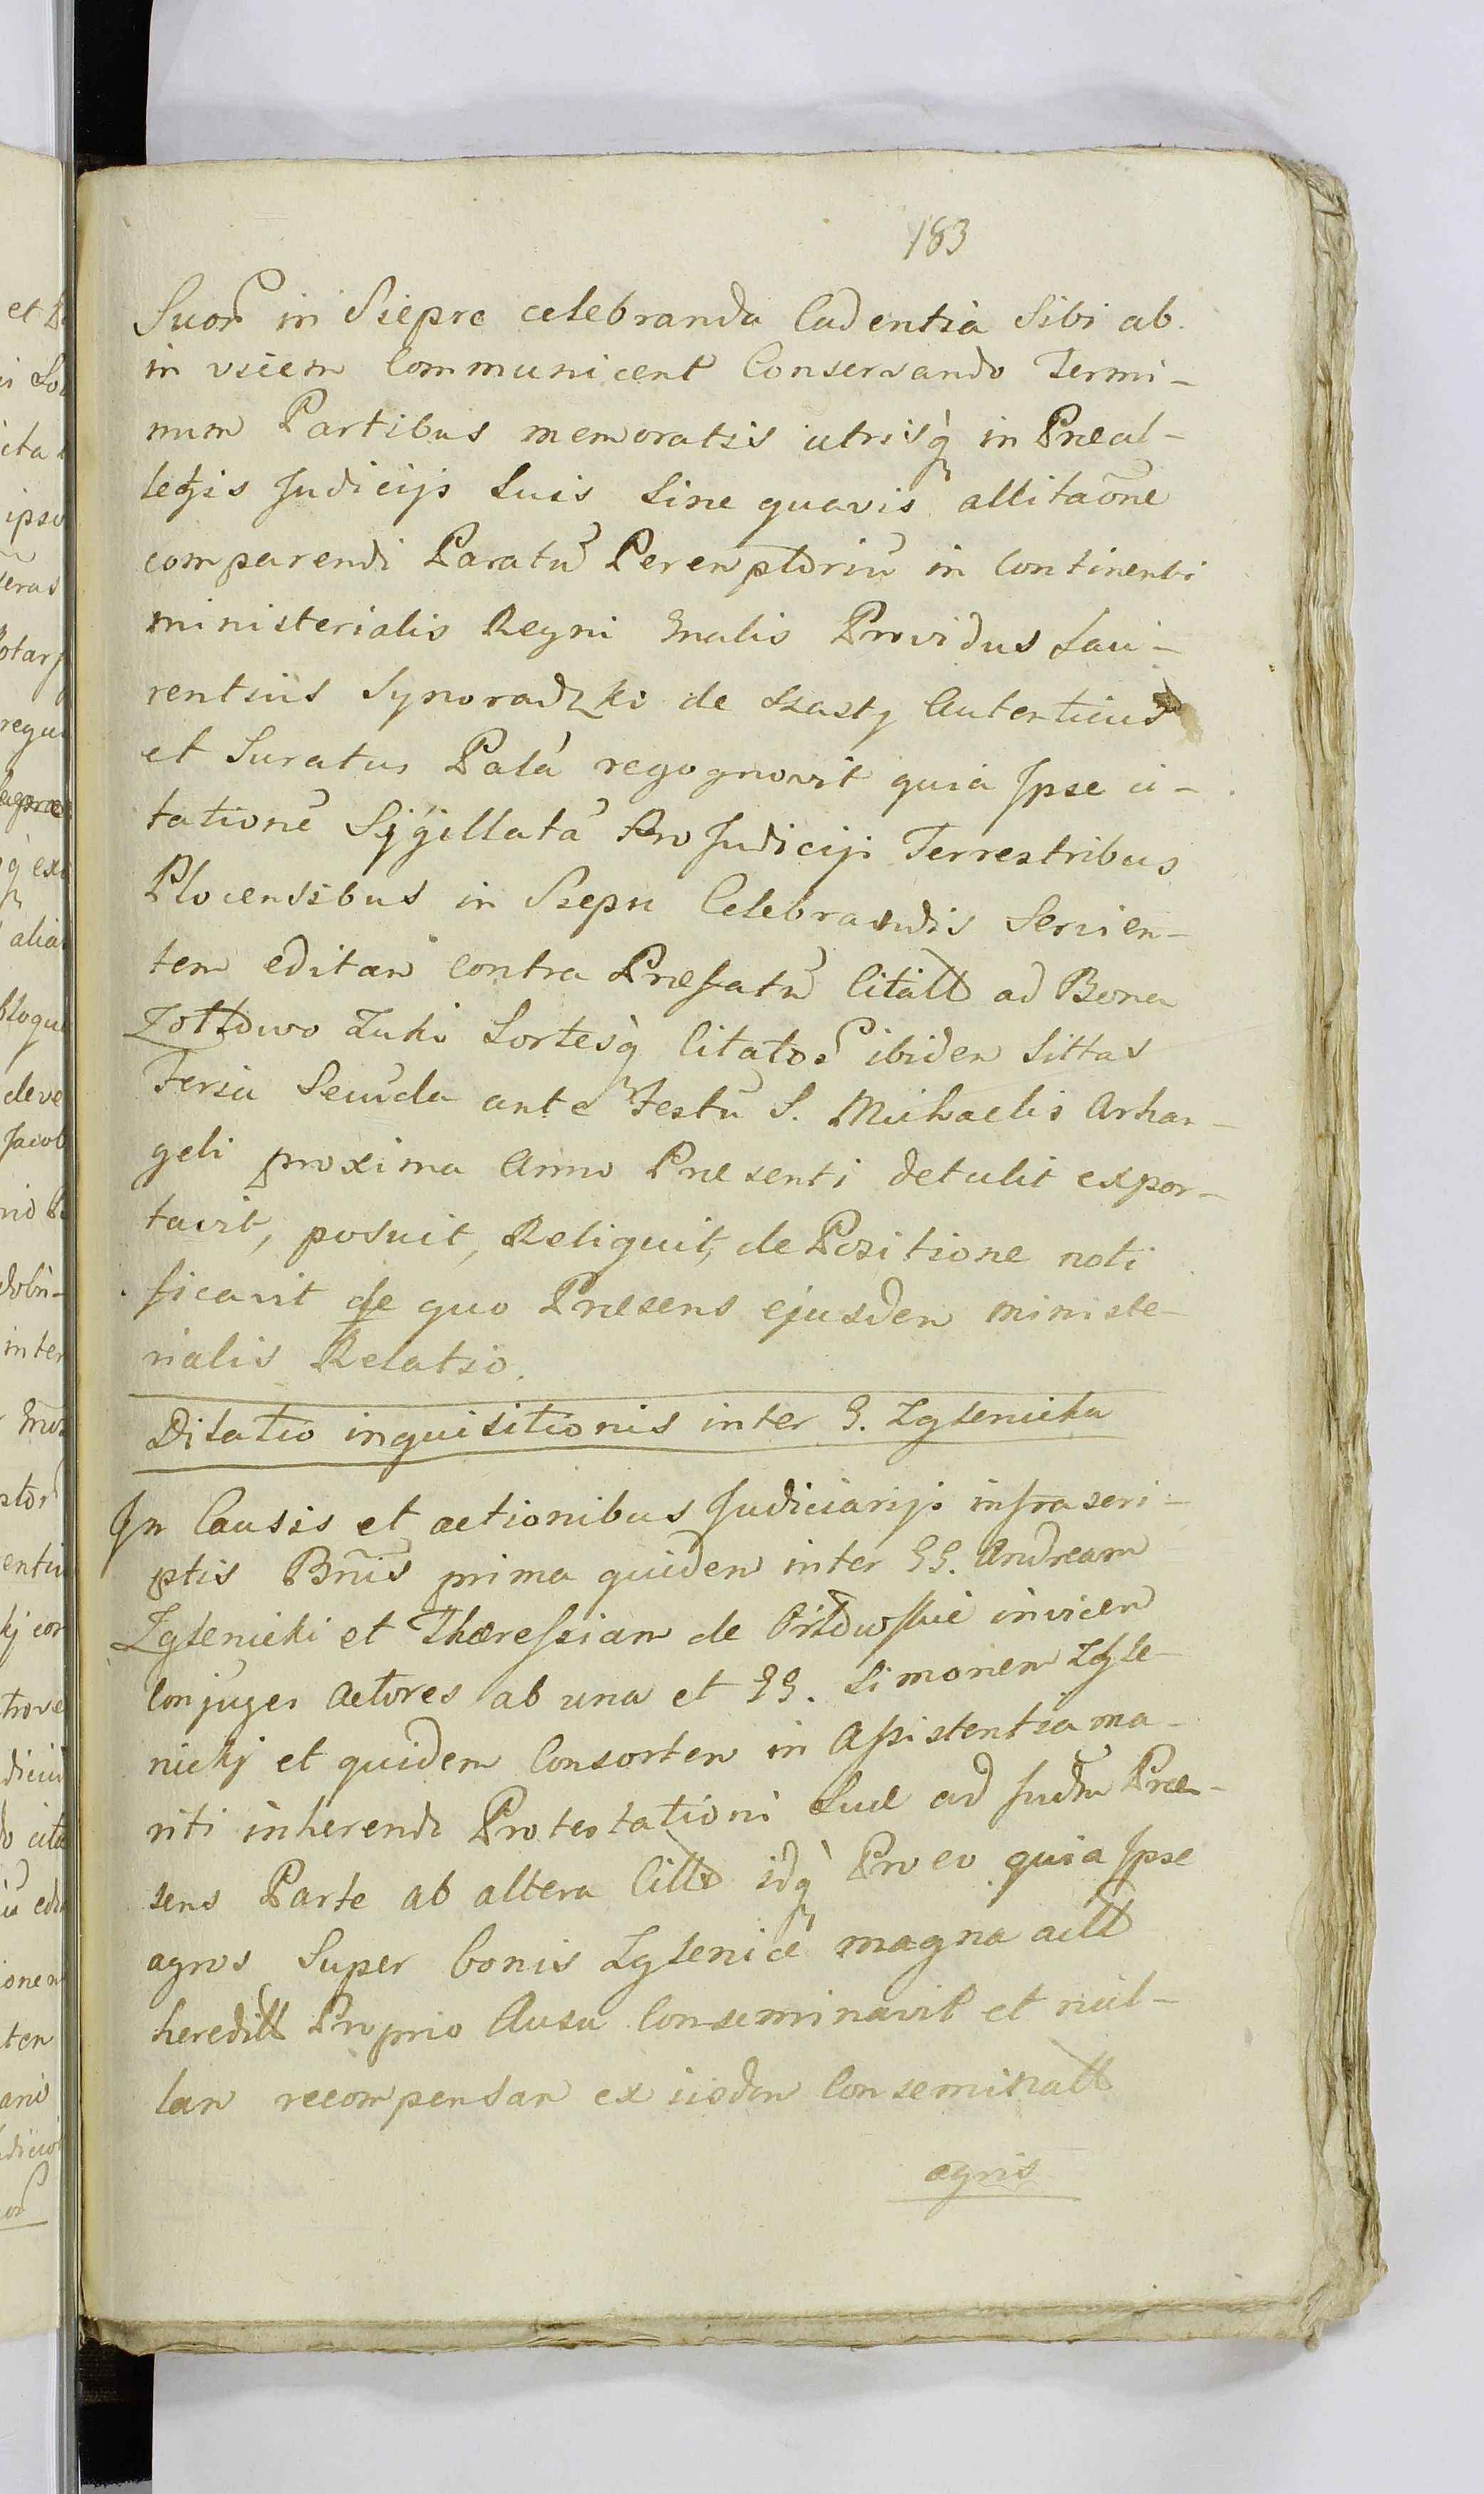 183
Suor in Siepre celebranda Cadentia Sibi ab
in vicem Communicent Conservando Termi-
num Partibus memoratis utrisq in Præal-
legis Judicijs Suis Sine quavis allitaõne
comparendi Paratũ Peremptoriũ in Continenti
ministerialis Regni Gnalis Providus Lau-
rentius Synoradzki de Autenticus
et Juratus Palã regognovit quia Ipse ci-
tationẽ Sygillatã Pro Judicijs Terrestribus
Plocensibus in Siepu Celebrandis Servien-
tem editam contra Præfatũ Citatt ad Bona
Zottowo Zuki Sortesq Citatos ibidem Sittas
Feria Secunda ante Festũ S. Michaelis Arhan-
geli proxima Anno Præsenti detulit expor-
tavit, posuit, Reliquit, de Positione noti
ficavit de quo Præsens ejusdem ministe-
rialis Relatio.
Dilatio inquisitionis inter G. Zglenicka
In Causis et actionibus Judiciarijs infra scri-
ptis Bnis prima quidem inter GG. Andream
Zglenicki et Theressiam de invicem
Conjuges Actores ab una et GG. Simonem Zgle-
nickj et quidem Consortem in Assistentia ma-
riti inherendi Protestationi Suæ ad Judm Præ-
sens Parte ab altera Citto idq Pro eo quia Ipse
agros Super bonis Zglenice magna actt
hereditt Proprio Ausu Conseminavit et nul-
lam recompensam ex iisdem Conseminatt
agris